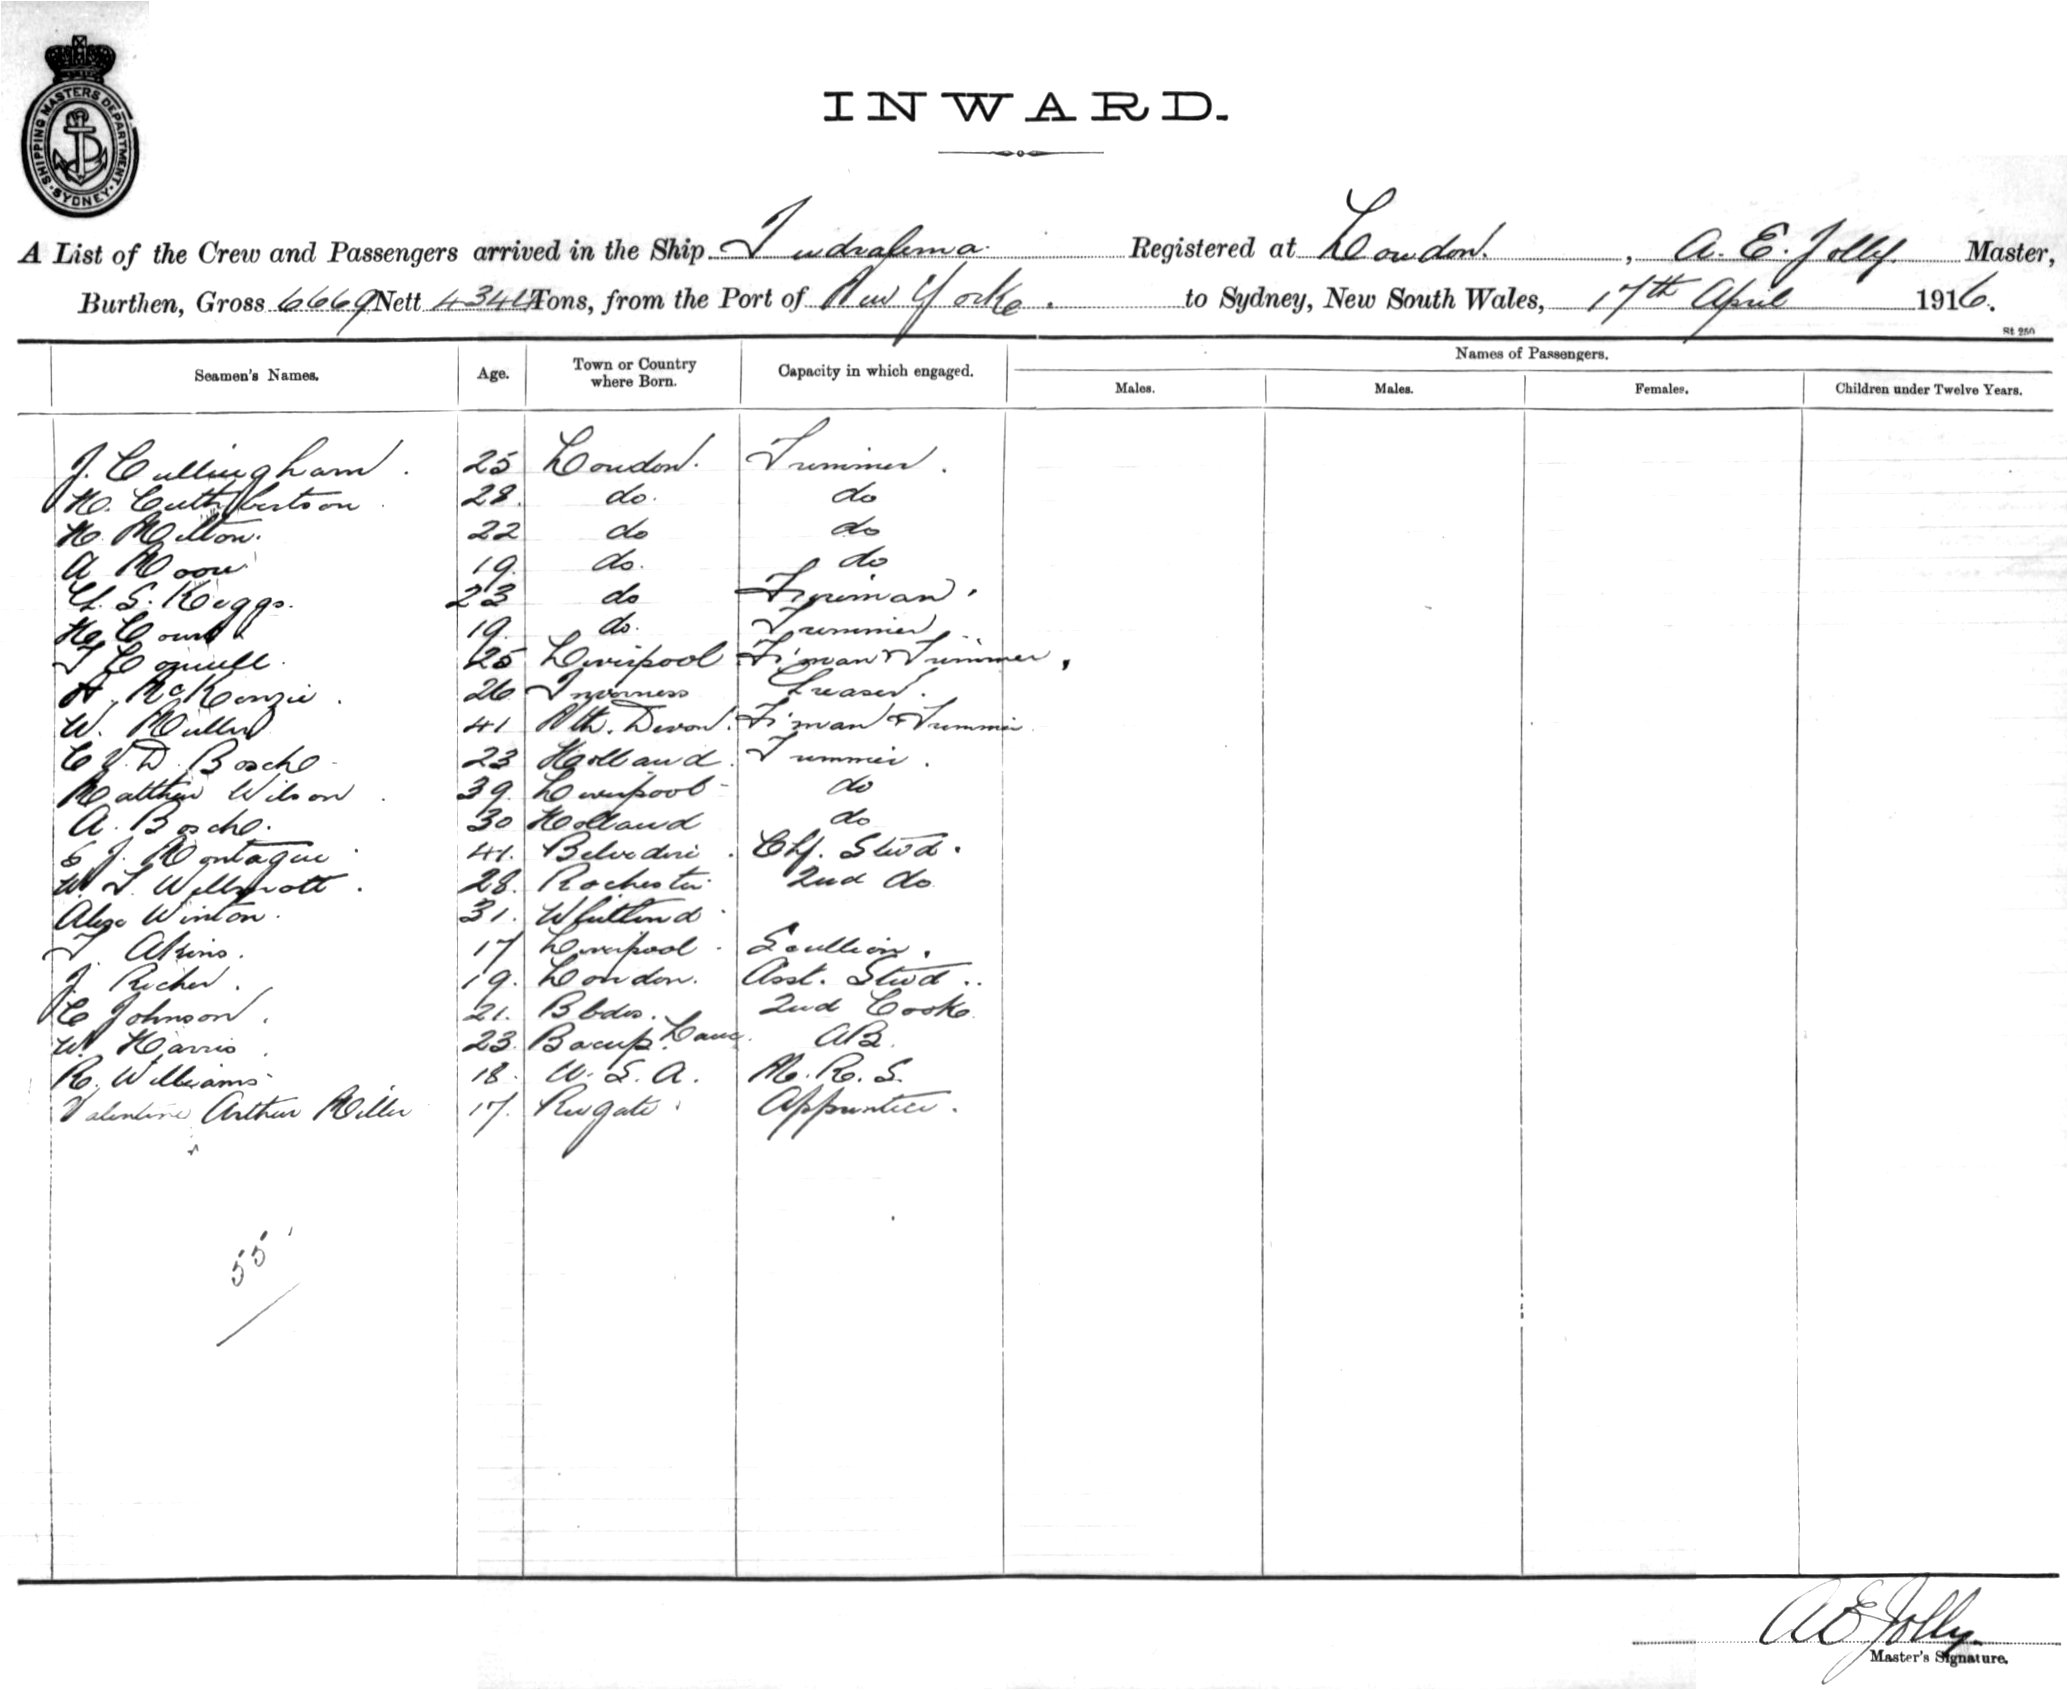 SHIPPING MASTERS DEPARTMENT · SYDNEY ·
INWARD.
A List of the Crew and Passengers arrived in the Ship Indralema Registered at London, A. E. Jolly Master,
Burthen, Gross 6669 Nett 4341 Tons, from the Port of New York. to Sydney, New South Wales, 17th April 1916.
St 250
Seamen's Names. Age. Town or Country where Born. Capacity in which engaged. Names of Passengers.
Males. Males. Females. Children under Twelve Years.
J. Cullingham. 25 London. Trimmer.
H. Cuthbertson. 28. do. do
H. Milton. 22 do do
A Moore 19. do. do
S. Keggs. 23 do Fireman.
H. Court 19. do. Trimmer
T Connell. 25 Liverpool Fi'man & Trimmer.
McKenzie. 26 Inverness Greaser.
W. Muller 41 Nth. Devon. Fi'man & Trimmer
C V. D. Bosch 23 Holland. Trimmer.
Matthew Wilson. 39. Liverpool do
A. Bosch. 30 Holland do
S J. Montague 41. Belvedere. Chf. Stwd.
W. T. Willmott. 28. Rochester. 2nd do
Alex Winton. 31.
T. Akins. 17 Liverpool. Scullion.
J. Richer. 19. London. Asst. Stwd..
C Johnson. 21. Bbdos. 2nd Cook
W. Harris. 23. Bacup. Lanc. AB.
R. Williams. 18. U. S. A. M. R. S.
Valentine Arthur Miller 17. Reigate. Apprentice.
55
A E Jolly.
Master's Signature.